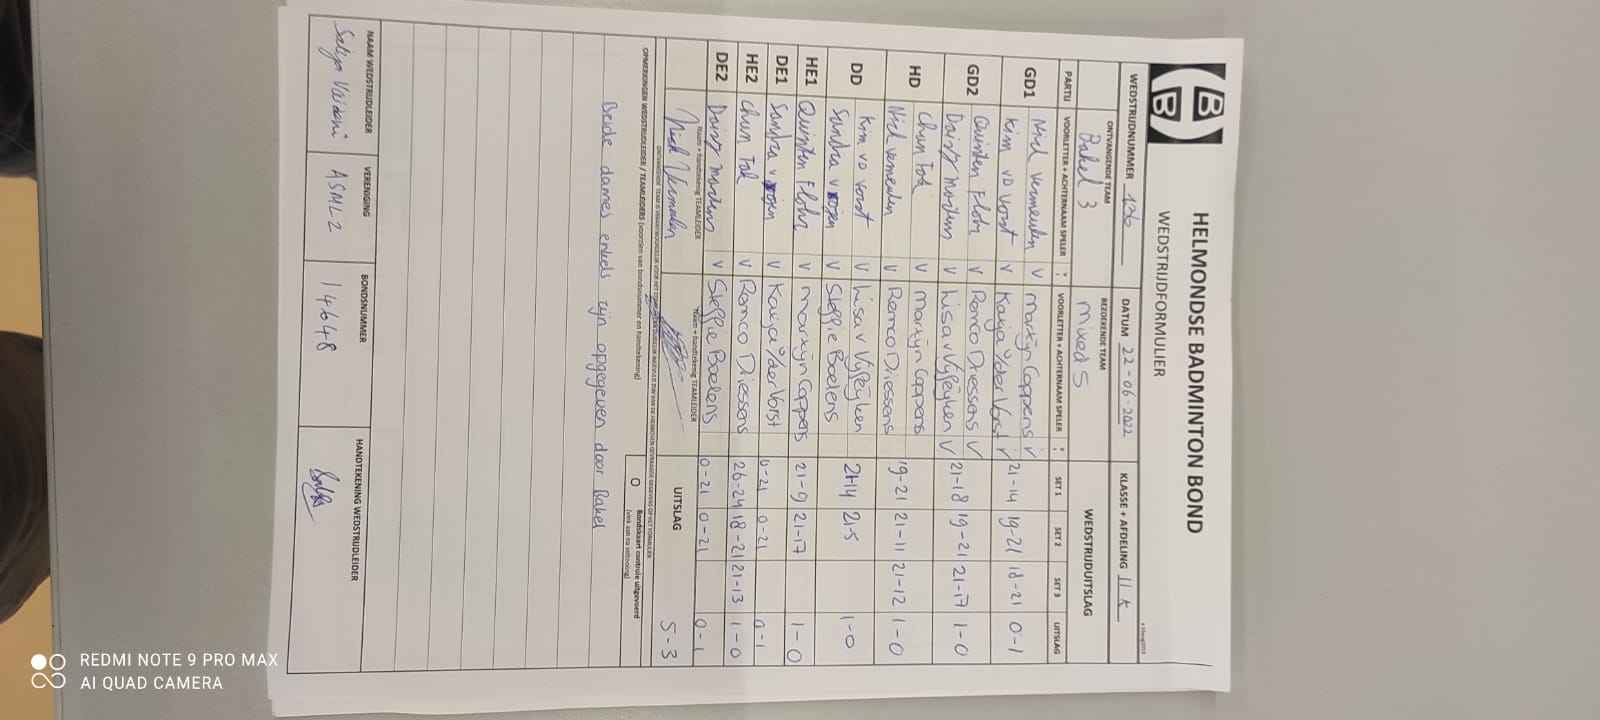 HELMONDSE BADMINTON BOND
WEDSTRIJDFORMULIER
WEDSTRIJDNUMMER 126 DATUM 22-06-2022 KLASSE + AFDELING
ONTVANGENDE TEAM BEZOEKENDE TEAM WEDSTRIJDUITSLAG
Bakel 3 mixed 5
PARTIJ VOORLETTER + ACHTERNAAM SPELER VOORLETTER + ACHTERNAAM SPELER SET 1 SET 2 SET 3 UITSLAG
GD1 Nick Vermeulen V Martijn Coppens V 21-14 19-21 18-21 0-1
Kim vd Vorst V Katja v der Vorst V
GD2 Quinten Flohr V Remco Driessens V 21-18 19-21 21-17 1-0
Daisy Martens V Lisa v Vijfeijken V
HD Chun Tak V Martijn Coppens 19-21 21-11 21-12 1-0
Nick Vermeulen V Remco Driessens
DD Kim vd Vorst V Lisa v Vijfeijken 21-14 21-5 1-0
Sandra v V Steffie Boelens
HE1 Quinten Flohr V Martijn Coppens 21-9 21-17 1-0
DE1 Sandra v V Katja v der Vorst 0-21 0-21 0-1
HE2 Chun Tak V Remco Driessens 26-24 18-21 21-13 1-0
DE2 Daisy Martens V Steffie Boelens 0-21 0-21 0-1
Naam + handtekening TEAMLEIDER Naam + handtekening TEAMLEIDER
Nick Vermeulen UITSLAG 5-3
OPMERKINGEN WEDSTRIJDLEIDER / TEAMLEIDERS (voorzien van bondsnummer en handtekening) O Bondskaart controle uitgevoerd
Beide dames enkels zijn opgegeven door Bakel
NAAM WEDSTRIJDLEIDER VERENIGING BONDSNUMMER HANDTEKENING WEDSTRIJDLEIDER
ASML 2 14648
REDMI NOTE 9 PRO MAX
AI QUAD CAMERA